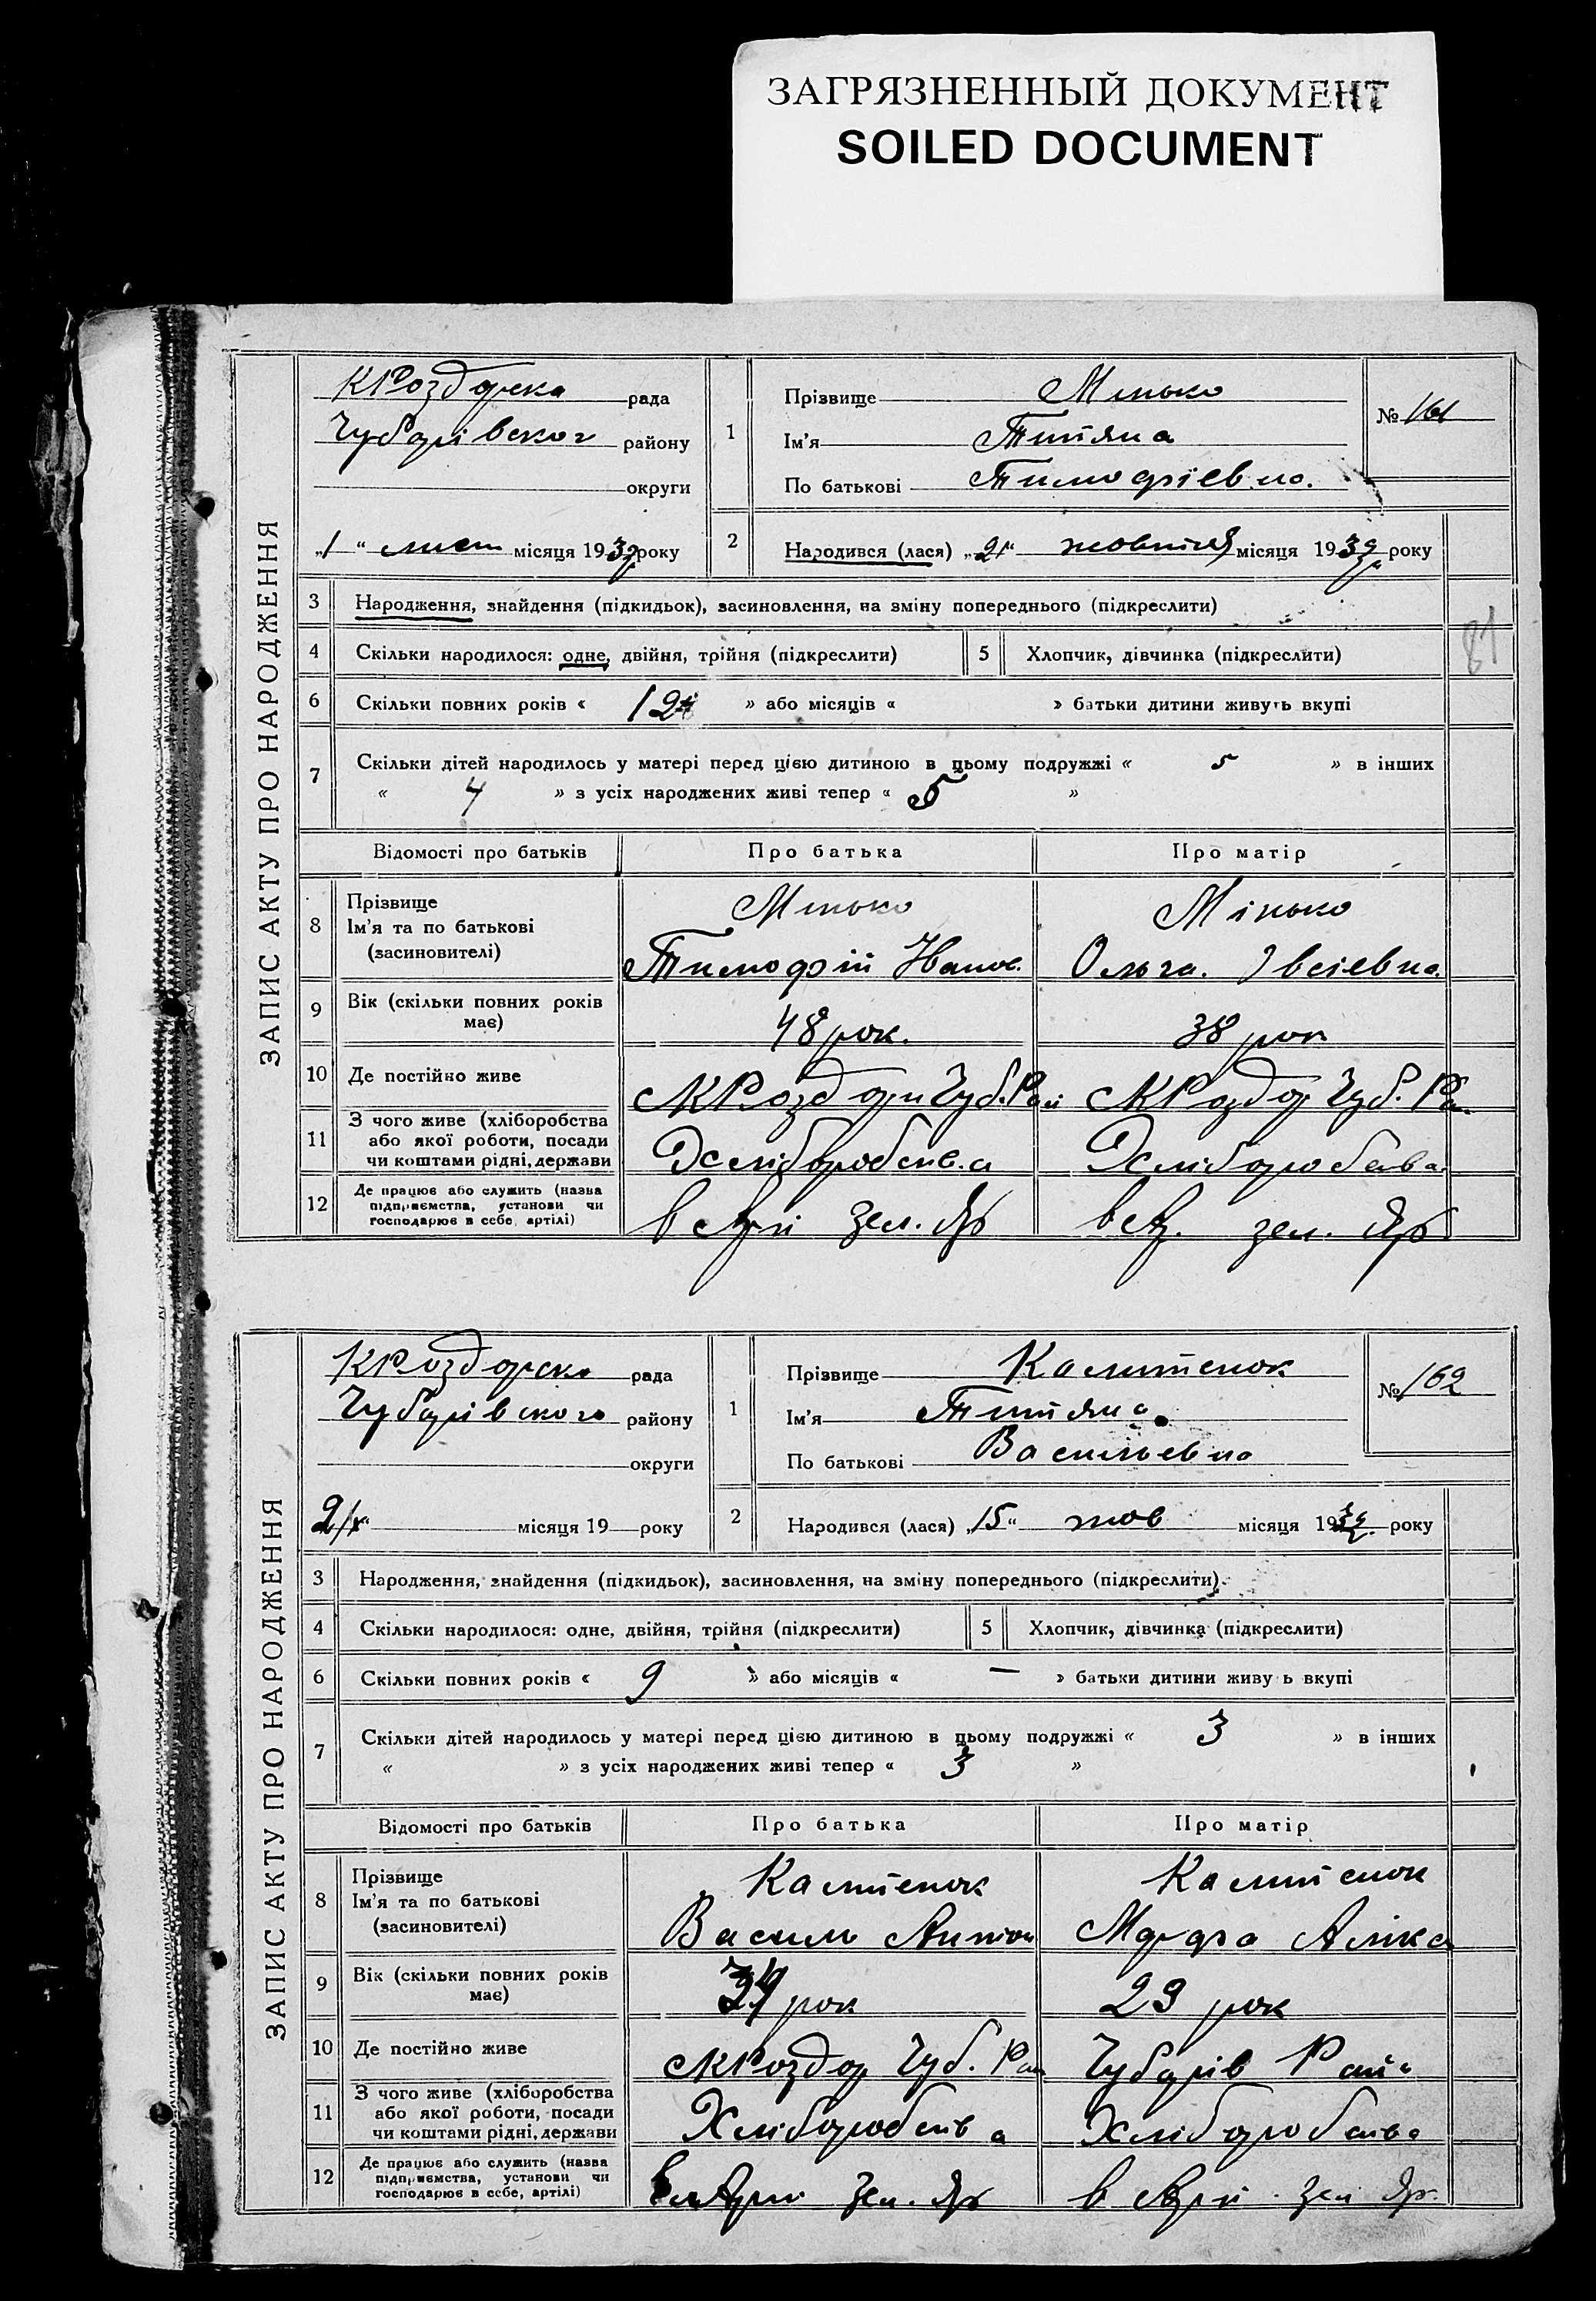 ЗАГРЯЗНЕННЫЙ ДОКУМЕНТ
SOILED DOCUMENT
ЗАПИС АКТУ ПРО НАРОДЖЕННЯ
КРоздорска рада
Чубарівског району
округи
„1“ лист місяця 1932 року
1
Прізвище Мінько
Ім'я Титяна
По батькові Тимофіевна.
№ 161
2
Народився (лася) „21“ жовтня місяця 1932 року
3 Народження, знайдення (підкидьок), засиновлення, на зміну попереднього (підкреслити)
4 Скільки народилося: одне, двійня, трійня (підкреслити)
5 Хлопчик, дівчинка (підкреслити)
81
6 Скільки повних років « 12 » або місяців « » батьки дитини живуть вкупі
7 Скільки дітей народилось у матері перед цією дитиною в цьому подружжі « 5 » в інших
« 4 » з усіх народжених живі тепер « 5 »
Відомості про батьків Про батька Про матір
8 Прізвище Мінько Мінько
Ім'я та по батькові
(засиновителі) Тимофій Иванов. Ольга. Івсіевна.
9 Вік (скільки повних років має) 48 рок. 38 рок
10 Де постійно живе с КРоздори Чуб. Рай с КРоздор Чуб. Ра.
11 З чого живе (хліборобства
або якої роботи, посади
чи коштами рідні, держави Хліборобства Хліборобства
12 Де працює або служить (назва
підприємства, установи чи
господарює в себе, артілі) в Арт зел. Яр в А. зел. Яр
ЗАПИС АКТУ ПРО НАРОДЖЕННЯ
КРоздорска рада
Чубарівского району
округи
місяця 19 року
1
Прізвище Калитенок
Ім'я Титяна
По батькові Васильевна
№ 162
2
Народився (лася) „15“ жов місяця 1932 року
3 Народження, знайдення (підкидьок), засиновлення, на зміну попереднього (підкреслити)
4 Скільки народилося: одне, двійня, трійня (підкреслити)
5 Хлопчик, дівчинка (підкреслити)
6 Скільки повних років « 9 » або місяців « — » батьки дитини живуть вкупі
7 Скільки дітей народилось у матері перед цією дитиною в цьому подружжі « 3 » в інших
« » з усіх народжених живі тепер « 3 »
Відомості про батьків Про батька Про матір
8 Прізвище Калитенок Калитенок
Ім'я та по батькові
(засиновителі) Василь Антон Марфа Алікса
9 Вік (скільки повних років має) рок 29 рок
10 Де постійно живе с КРоздор Чуб. Рай Чубарів Рай
11 З чого живе (хліборобства
або якої роботи, посади
чи коштами рідні, держави Хліборобства Хліборобства
12 Де працює або служить (назва
підприємства, установи чи
господарює в себе, артілі) зел. Яр в Арт зел Яр.